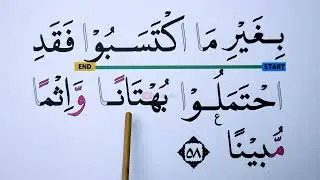 بِغَيْرِ مَا اكْتَسَبُوْا فَقَدِ
END START
احْتَمَلُوْا بُهْتَانًا وَّاِثْمًا
مُّبِيْنًا ۝٥٨ ع